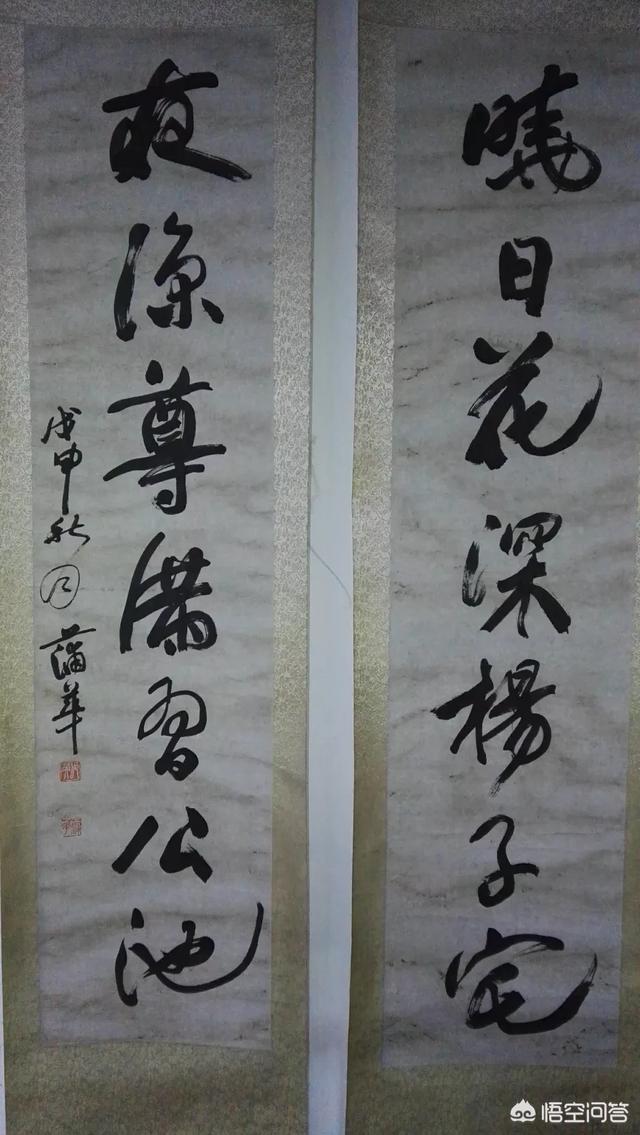 曉日花深楊子宅
夜涼尊滿習公池
戊申秋月蒲華
悟空问答